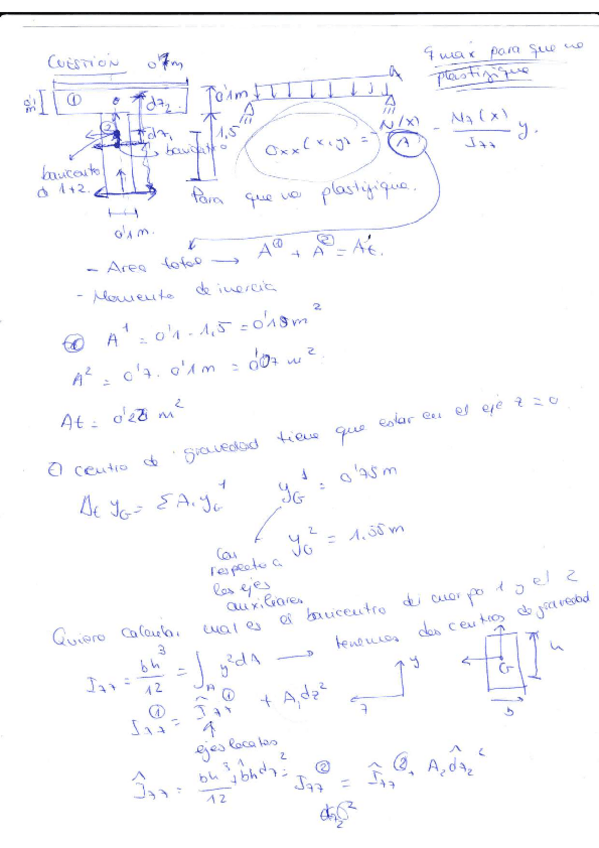 CUESTIÓN 0'7m
qmax para que no
plastifique
0'1m
①
dz2
0'1m
q
②
dz1
1,5
baricentro
σxx (x,y) = N(x)/A - Mz(x)/Izz y.
baricentro
1+2.
Para que no plastifique.
0'1m.
- Area total → A① + A② = At.
- Momento de inercia
A1 = 0'1 · 1,5 = 0'15m2
A2 = 0'7 · 0'1m = 0'07 m2
At = 0'22 m2
El centro de gravedad tiene que estar en el eje z = 0
At yG = Σ Ai yG1
yG1 = 0'75m
yG2 = 1,55m
Con
respecto a
los ejes
auxiliares
Quiero calcular cual es el baricentro del cuerpo 1 y el 2
Izz = bh3/12 = ∫A y2dA → tenemos dos centros de gravedad
y
z
G
h
b
Izz① = Îzz① + A1dz2
ejes locales
Îzz = bh3/12 + bhdz2
Izz② = Îzz② + A2dz22